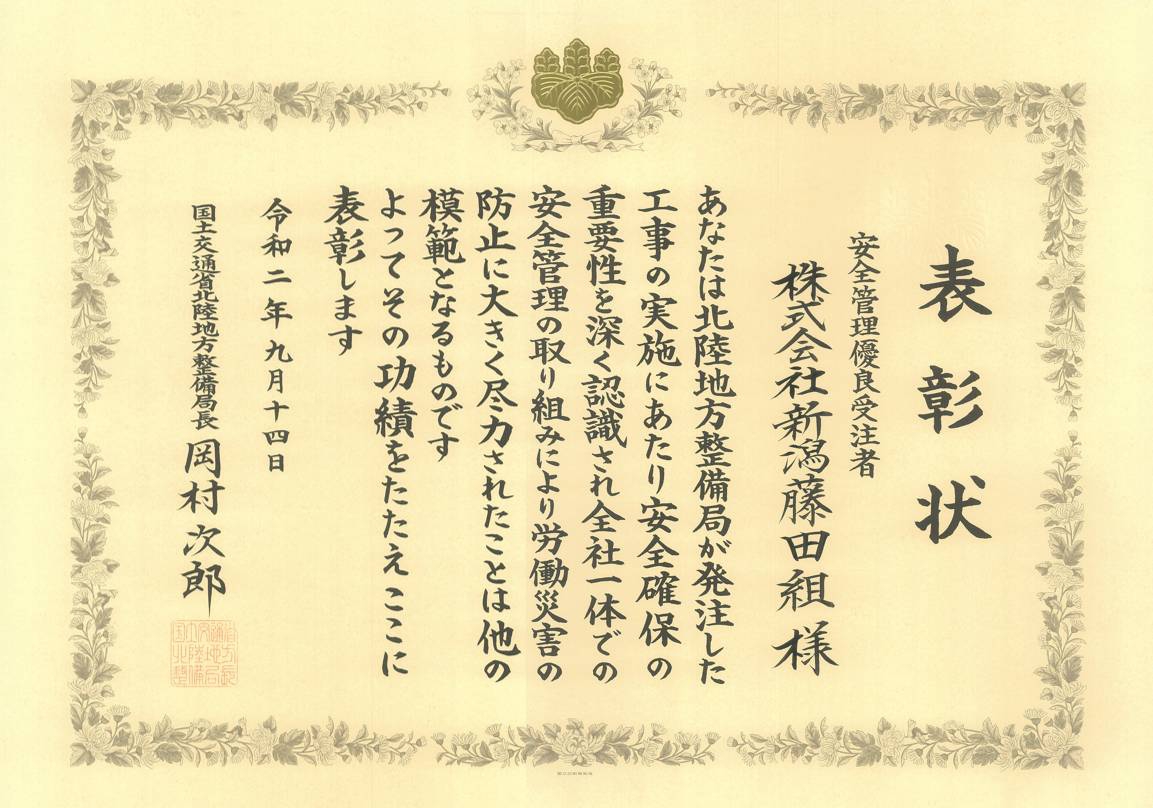 表彰状
安全管理優良受注者
株式会社新潟藤田組様
あなたは北陸地方整備局が発注した
工事の実施にあたり安全確保の
重要性を深く認識され全社一体での
安全管理の取り組みにより労働災害の
防止に大きく尽力されたことは他の
模範となるものです
よってその功績をたたえここに
表彰します
令和二年九月十四日
国土交通省北陸地方整備局長 岡村次郎